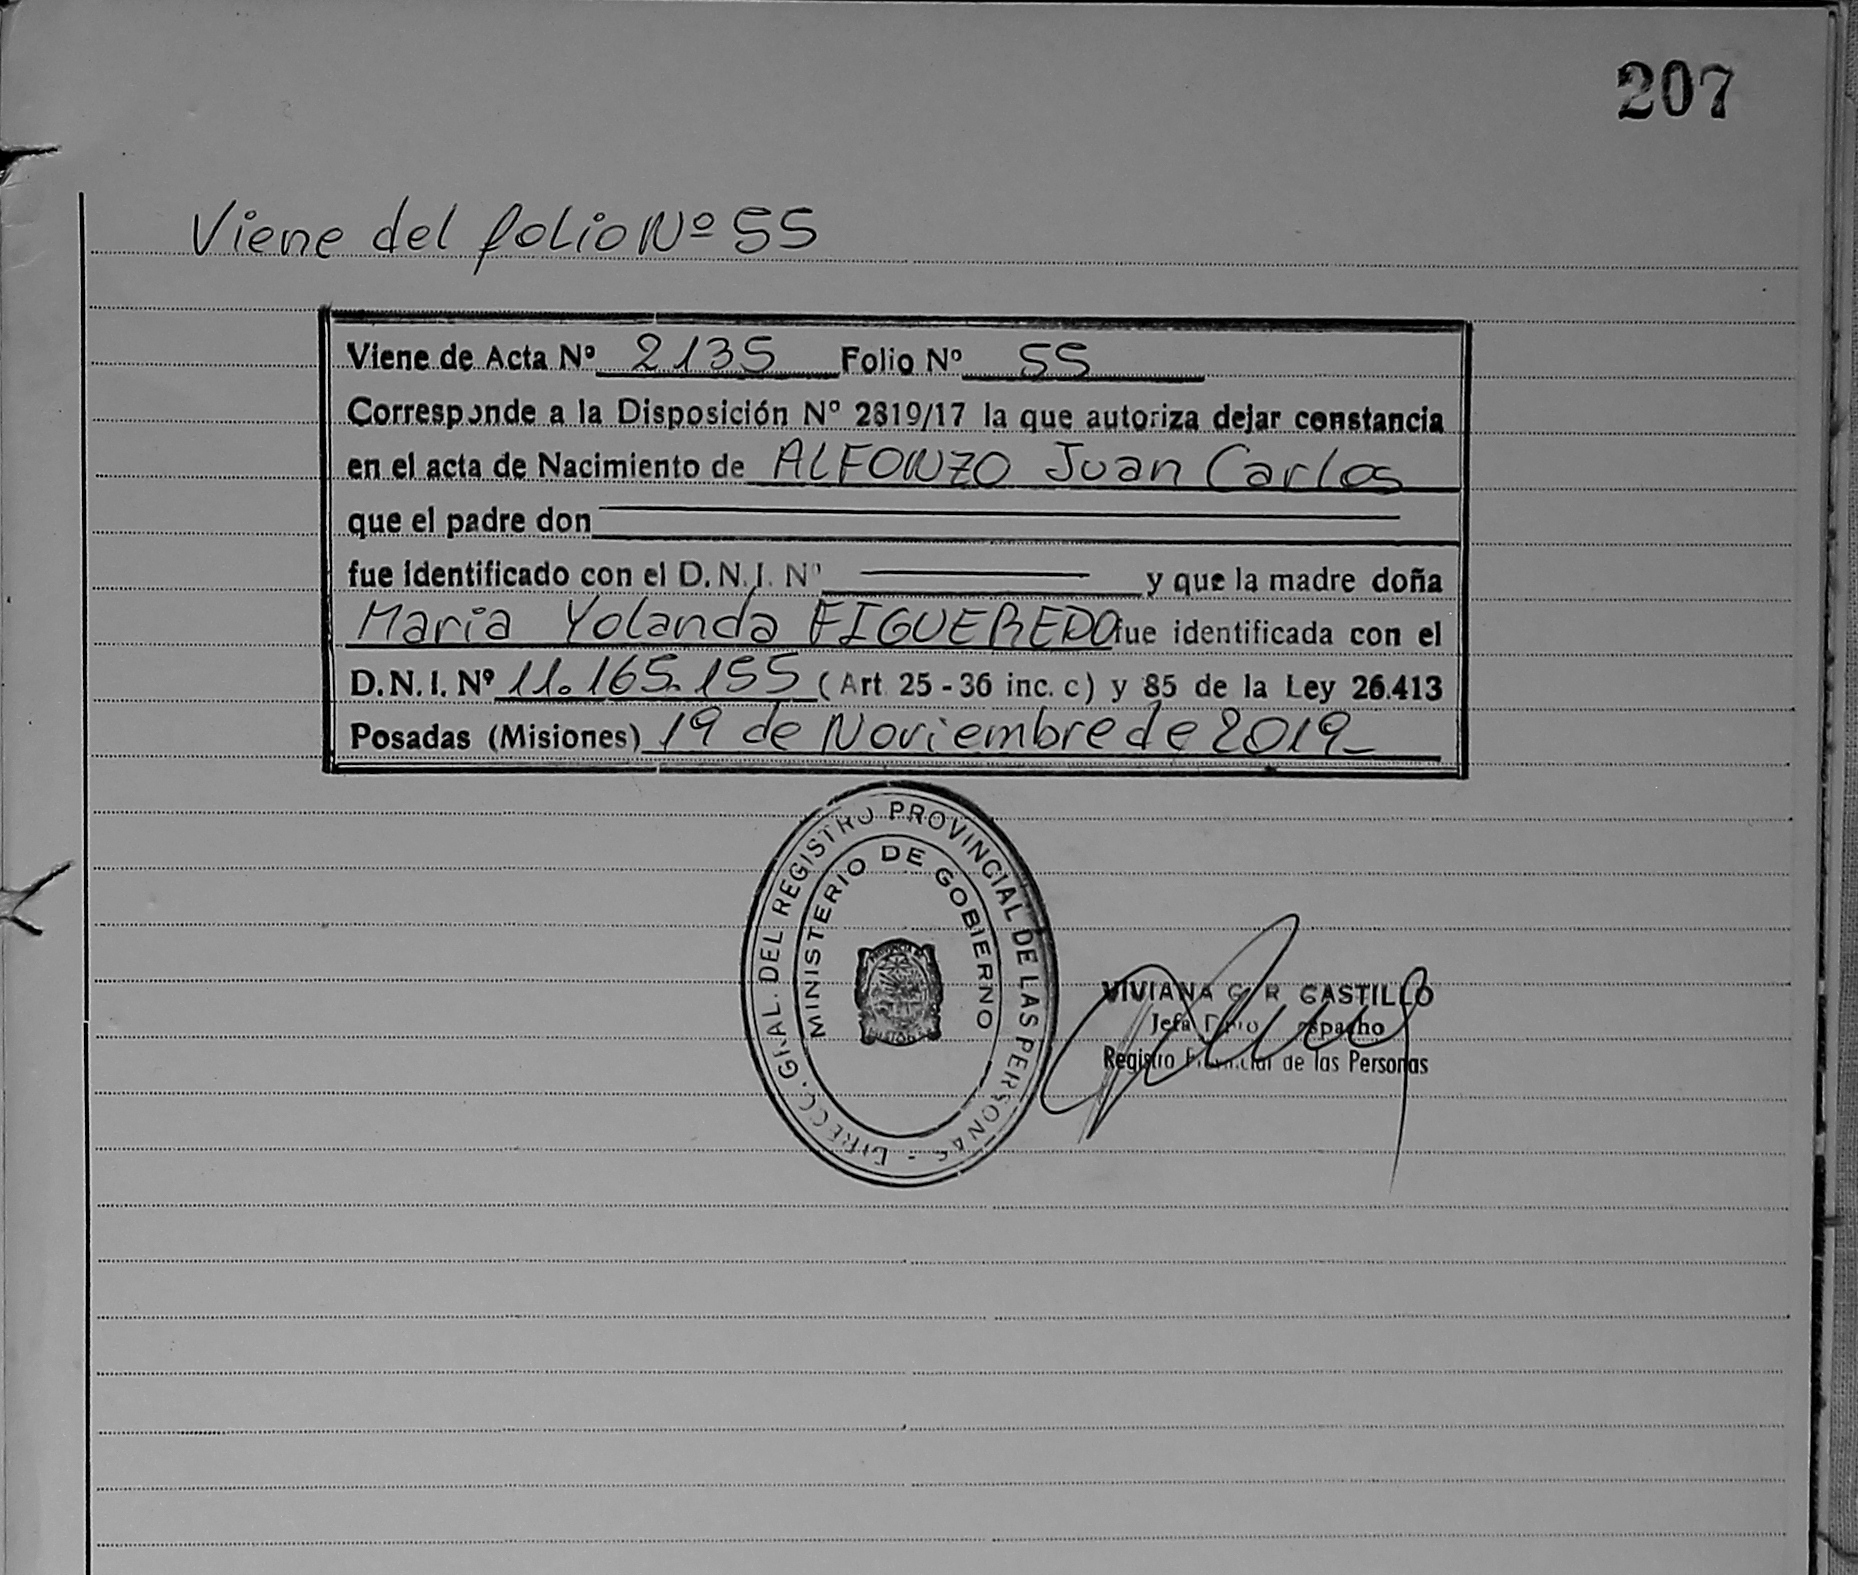 207
Viene del folio Nº 55
Viene de Acta Nº 2135 Folio Nº 55
Corresponde a la Disposición Nº 2819/17 la que autoriza dejar constancia
en el acta de Nacimiento de ALFONZO Juan Carlos
que el padre don
fue identificado con el D.N.I. Nº y que la madre doña
Maria Yolanda FIGUEREDO fue identificada con el
D.N.I. Nº 11.165.155 (Art 25 - 36 inc. c) y 85 de la Ley 26.413
Posadas (Misiones) 19 de Noviembre de 2019_
DIRECC. GRAL. DEL REGISTRO PROVINCIAL DE LAS PERSONAS -
MINISTERIO DE GOBIERNO
VIVIANA G. R. CASTILLO
Jefa Dpto. Despacho
Registro Provincial de las Personas